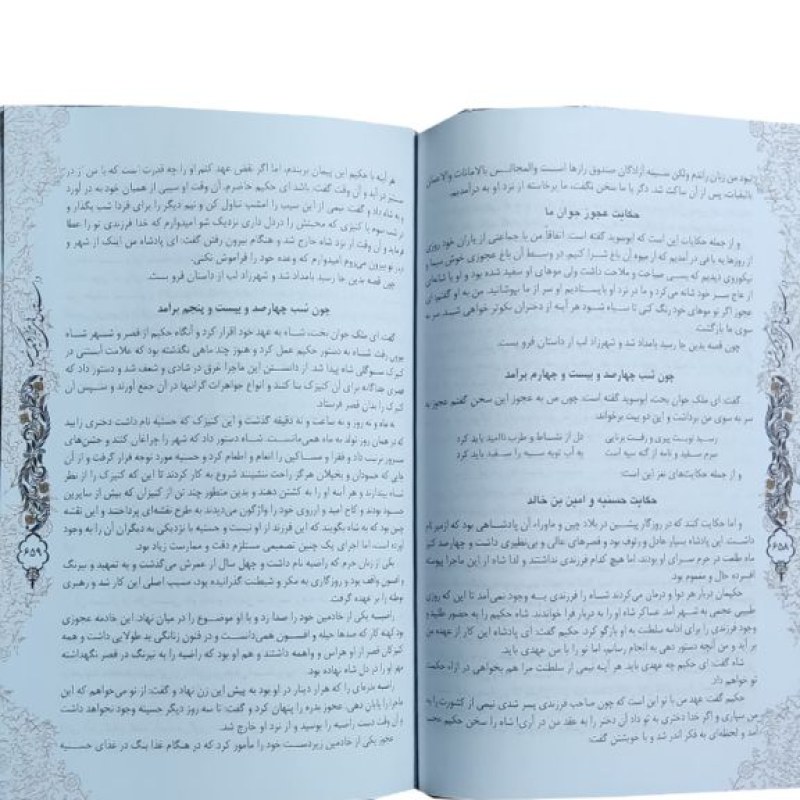 نبود من زبان راندم ولکن سینه آزادگان صندوق رازها است والمجالس بالامانات والاعمال
بالنیات، پس از آن ساکت شد. دگر با ما سخن نگفت، ما برخاسته از نزد او به درآمدیم.
حکایت عجوز جوان ما
و از جمله حکایات این است که ابوسوید گفته است: اتفاقاً من با جماعتی از یاران خود روزی
از روزها به باغی در آمدیم که میوه از آن باغ شرا کنیم. در وسط آن باغ عجوزی خوش سیما و
نیکوروی دیدیم که بسی صباحت و ملاحت داشت ولی موهای او سفید شده بود و او با شانهای
از عاج سر خود شانه می‌کرد و ما در نزد او بایستادیم او سر از ما نپوشانید. من به او گفتم ای
عجوز اگر تو موهای خود رنگ کنی تا سیاه شود هر آینه از دختران نکوتر خواهی شد. سر به
سوی ما بازگشت.
چون قصه بدین جا رسید بامداد شد و شهرزاد لب از داستان فرو بست.
چون شب چهارصد و بیست و چهارم برآمد
گفت ای ملک جوان بخت، ابوسوید گفته است: چون من به عجوز این سخن گفتم عجوز به
سر به سوی من برداشت و این دو بیت برخواند.
رسید نوبت پیری و رفت برنایی دل از نشاط و طرب ناامید باید کرد
سرم سفید و نامه از گنه سیه است به آب توبه سیه را سفید باید کرد
و از جمله حکایت‌های نغز این است:
حکایت حسنیه و امین بن خالد
و اما حکایت کنند که در روزگار پیشین در بلاد چین و ماوراء آن پادشاهی بود که ازمیر نام
داشت. این پادشاه بسیار عادل و رئوف بود و قصرهای عالی و بی‌نظیری داشت و چهارصد کنیز
ماه طلعت در حرم سرای او بودند. اما هیچ کدام فرزندی نداشتند و لذا شاه از این ماجرا پیوسته
افسرده حال و مغموم بود.
حکیمان دربار هر دوا و درمان می‌کردند شاه را فرزندی به وجود نمی‌آمد تا این که روزی
طبیبی عجمی به شهر آمد. عساکر شاه او را به دربار فرا خواندند. شاه حکیم را به حضور طلبید و
وجود فرزندی را برای ادامه سلطنت به او بازگو کرد. حکیم گفت: ای پادشاه این کار از عهده من
بر آید و من آنچه دستور دهی به انجام رسانم، اما تو را با من عهدی باید.
شاه گفت: ای حکیم چه عهدی باید. هر آینه نیمی از سلطنت مرا هم بخواهی در ازاء حکمت
تو خواهم داد.
حکیم گفت: عهد من با تو این است که چون صاحب فرزندی پسر شدی نیمی از کشورت را به
من سپاری و اگر خدا دختری به تو داد آن دختر را به عقد من در آری! شاه را سخن حکیم عجب
آمد و لحظه‌ای به فکر اندر شد و با خویشتن گفت:
۶۵۸
هر آینه با حکیم این پیمان بربندم، اما اگر نقض عهد کنم او را چه قدرت است که با من از در
ستیز درآید و آن وقت گفت، باشد ای حکیم حاضرم. آن وقت او سیبی از همیان خود به در آورد
و به شاه داد و گفت نیمی از این سیب را امشب تناول کن و نیم دیگر را برای فردا شب بگذار و
در شب سوم با کنیزی که محبتش را در دل داری نزدیک شو امیدوارم که خدا فرزندی تو را عطا
فرماید و آن وقت از نزد شاه خارج شد و هنگام بیرون رفتن گفت: ای پادشاه من اینک از شهر و
دیار تو بیرون می‌روم امیدوارم که وعده خود را فراموش نکنی.
چون قصه بدین جا رسید بامداد شد و شهرزاد لب از داستان فرو بست.
چون شب چهارصد و بیست و پنجم برآمد
گفت ای ملک جوان بخت، شاه به عهد خود اقرار کرد و آنگاه حکیم از قصر و شهر شاه
بیرون رفت. شاه به دستور حکیم عمل کرد و هنوز چند ماهی نگذشته بود که علامت آبستنی در
کنیزک سوگلی شاه پیدا شد. از دانستن این ماجرا غرق در شادی و شعف شد و دستور داد که
قصری جداگانه برای آن کنیزک بنا کنند و انواع جواهرات گرانبها در آن جمع آورند و سپس آن
کنیزک را بدان قصر فرستاد.
نه ماه و نه روز و نه ساعت و نه دقیقه گذشت و این کنیزک که حسنیه نام داشت دختری را بزاد
که در همان روز تولد به ماه همی‌مانست. شاه دستور داد که شهر را چراغان کنند و جشن‌های
سرور ترتیب داد و فقرا و مساکین را انعام و اطعام کرد و حسنیه مورد توجه قرار گرفت و از آن
جایی که حسودان و بخیلان هرگز راحت ننشینند شروع به کار کردند تا این که کنیزک را از نظر
شاه بیندازند و هر آینه او را به کشتن دهند و بدین منظور چند تن از کنیزان که بیش از سایرین
حسود بودند و کاخ امید و آرزوی خود را واژگون می‌دیدند به طرح نقشه‌ای پرداختند و این نقشه
چنین بود که به شاه بگویند که این فرزند از او نیست و حسنیه با نزدیکی به دیگران آن را به وجود
آورده است. اما اجرای یک چنین تصمیمی مستلزم دقت و ممارست زیاد بود.
یکی از زنان حرم که راضیه نام داشت و چهل سال از عمرش می‌گذشت و به تمهید و نیرنگ
و افسون واقف بود و روزگاری به مکر و شیطنت گذرانیده بود. مسبب اصلی این کار شد و رهبری
توطئه را بر عهده گرفت.
راضیه یکی از خادمین خود را صدا زد و با او موضوع را در میان نهاد. این خادمه عجوزی
بود کهنه کار که صدها حیله و افسون همی‌دانست و در فنون زنانگی ید طولایی داشت و همه
کنیزکان قصر از او هراس و واهمه داشتند و هم او بود که راضیه را به نیرنگ در قصر نگهداشته
مهر او را در دل شاه نهاده بود.
راضیه بدره‌ای را که هزار دینار در او بود به پیش این زن نهاد و گفت: از تو می‌خواهم که این
ماجرا را پایان دهی، عجوز بدره را پنهان کرد و گفت: تا سه روز دیگر حسنیه وجود نخواهد داشت
و آن وقت دست راضیه را بوسید و از نزد او خارج شد.
عجوز یکی از خادمین زیردست خود را مأمور کرد که در هنگام غذا بنگ در غذای حسنیه
۶۵۹